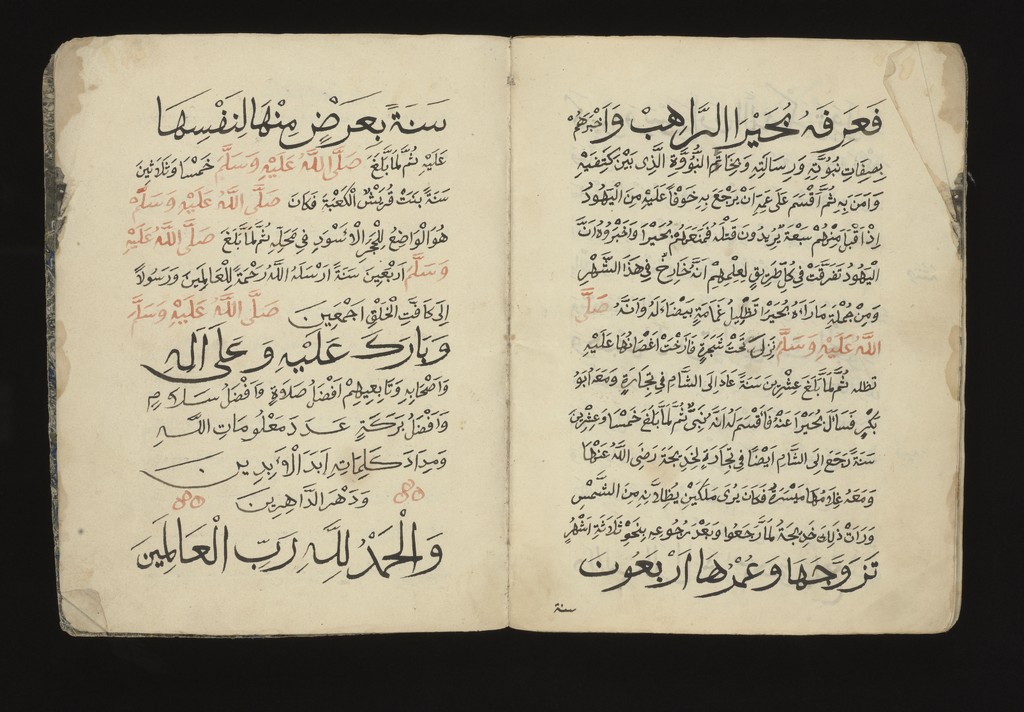 فَعَرِفَهُ بُحَيْرَا الرَّاهِبْ وَاَخْبَرَهُمْ
بِصِفَاتِ نُبُوَّتِهِ وَرِسَالَتِهِ وَبِخَاتَمِ النُّبُوَّةِ الَّذِى بَيْنَ كَتِفَيْهِ
وَاٰمَنَ بِهِ ثُمَّ اَقْسَمَ عَلَى عَمِّهِ اَنْ يَرْجِعَ بِهِ خَوْفًا عَلَيْهِ مِنَ الْيَهُودُ
اِذْ اَقْبَلَ مِنْهُمْ سَبْعَةٌ يُرِيدُونَ قَتْلَهُ فَمَنَعَهُمْ بُحَيْرَا وَاَخْبَرُوهُ اَنَّ
الْيَهُودَ تَفَرَّقَتْ فِى كُلِّ طَرِيقٍ لِعِلْمِهِمْ اَنَّهُ خَارِجٌ فِى هٰذَا الشَّهْرِ
وَمِنْ جُمْلَةِ مَارَاٰهُ بُحَيْرَا تَظْلِيلُ غَمَامَةٍ بَيْضَاءَ لَهُ وَاَنَّهُ صَلَّى
اللّٰهُ عَلَيْهِ وَسَلَّمَ نَزَلَ تَحْتَ شَجَرَةٍ فَاَرْخَتْ اَغْصَانَهَا عَلَيْهِ
تظله ثُمَّ لَمَّا بَلَغَ عِشْرِينَ سَنَةً عَادَ اِلَى الشَّامِ فِى تِجَارَةٍ وَمَعَهُ اَبُو
بَكْرٍ فَسَاَلَ بُحَيْرَا عَنْهُ فَاَقْسَمَ لَهُ اَنَّهُ نَبِىٌّ ثُمَّ لَمَّا بَلَغَ خَمْسًا وَعِشْرِينَ
سَنَةً رَجَعَ اِلَى الشَّامِ اَيْضًا فِى تِجَارَةٍ لِخَدِيجَةَ رَضِىَ اللّٰهُ عَنْهَا
وَمَعَهُ غُلَامُهَا مَيْسَرَةُ فَكَانَ يَرَى مَلَكَيْنِ يُظِلَّانِهِ مِنَ الشَّمْسِ
وَرَاَتْ ذٰلِكَ خَدِيجَةُ لَمَّا رَجَعُوا وَبَعْدَ رُجُوعِهِ بِنَحْوِ ثَلَاثَةِ اَشْهُرٍ
تَزَوَّجَهَا وَعُمْرُهَا اَرْبَعُونَ
سنة
سَنَةً بِعَرْضٍ مِنْهَا لِنَفْسِهَا
عَلَيْهِ ثُمَّ لَمَّا بَلَغَ صَلَّى اللّٰهُ عَلَيْهِ وَسَلَّمَ خَمْسًا وَثَلَاثِينَ
سَنَةً بَنَتْ قُرَيْشٌ الْكَعْبَةَ فَكَانَ صَلَّى اللّٰهُ عَلَيْهِ وَسَلَّمَ
هُوَ الْوَاضِعُ لِلْحَجَرِ الْاَسْوَدِ فِى مَحَلِّهِ ثُمَّ لَمَّا بَلَغَ صَلَّى اللّٰهُ عَلَيْهِ
وَسَلَّمَ اَرْبَعِينَ سَنَةً اَرْسَلَهُ اللّٰهُ رَحْمَةً لِلْعَالَمِينَ وَرَسُولًا
اِلَى كَافَّتِ الْخَلْقِ اَجْمَعِينَ صَلَّى اللّٰهُ عَلَيْهِ وَسَلَّمَ
وَبَارَكَ عَلَيْهِ وَعَلَى اٰلِهِ
وَاَصْحَابِهِ وَتَابِعِيهِمْ اَفْضَلُ صَلَاةٍ وَاَفْضَلُ سَلَامٍ
وَاَفْضَلُ بَرَكَةٍ عَدَدَ مَعْلُومَاتِ اللّٰهِ
وَمِدَادَ كَلِمَاتِهِ اَبَدَ الْاٰبِدِينَ
وَدَهْرَ الدَّاهِرِينَ
وَالْحَمْدُ لِلّٰهِ رَبِّ الْعَالَمِينَ